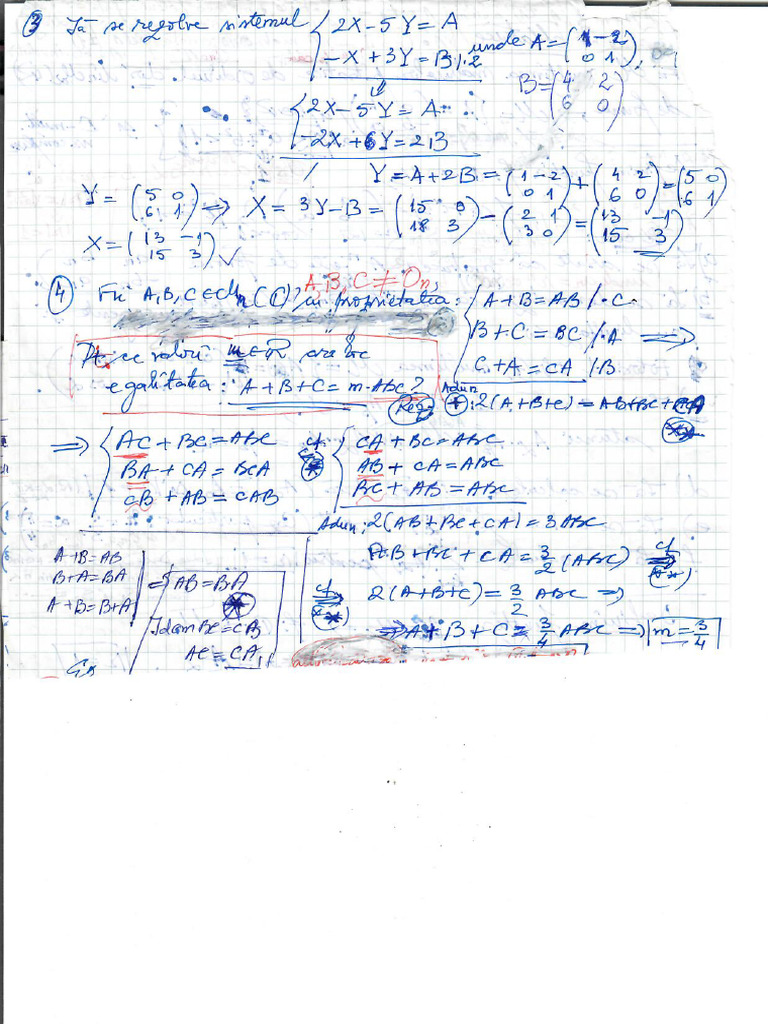 ③ Să se rezolve sistemul { 2X-5Y=A
-X+3Y=B |·2 unde A=(1 -2; 0 1),
B=(4 2; 6 0)
⇓
{ 2X-5Y=A
-2X+6Y=2B
/ Y=A+2B=(1 -2; 0 1)+(4 2; 6 0)=(5 0; 6 1)
Y=(5 0; 6 1) ⇒ X=3Y-B=(15 0; 18 3)-(2 1; 3 0)=(13 -1; 15 3)
X=(13 -1; 15 3) ✓
④ Fie A,B,C∈ℳn(ℂ), A,B,C≠On, cu proprietatea: { A+B=AB /·C
B+C=BC /·A ⇒
C+A=CA /·B
Pt. ce valori m∈ℝ are loc
egalitatea: A+B+C=m·ABC?
Rez:
Adun
(*): 2(A+B+C)=AB+BC+CA
(**)
⇒ { AC+BC=ABC
BA+CA=BCA
CB+AB=CAB
cf. (*) { CA+BC=ABC
AB+CA=ABC
BC+AB=ABC
Adun: 2(AB+BC+CA)=3ABC
AB+BC+CA=3/2(ABC) cf (**) ⇒
A+B=AB
B+A=BA
A+B=B+A
⇒ AB=BA
(*)
Idem BC=CB
AC=CA
cf (**) ⇒ 2(A+B+C)=3/2 ABC ⇒
⇒ A+B+C=3/4 ABC ⇒ m=3/4